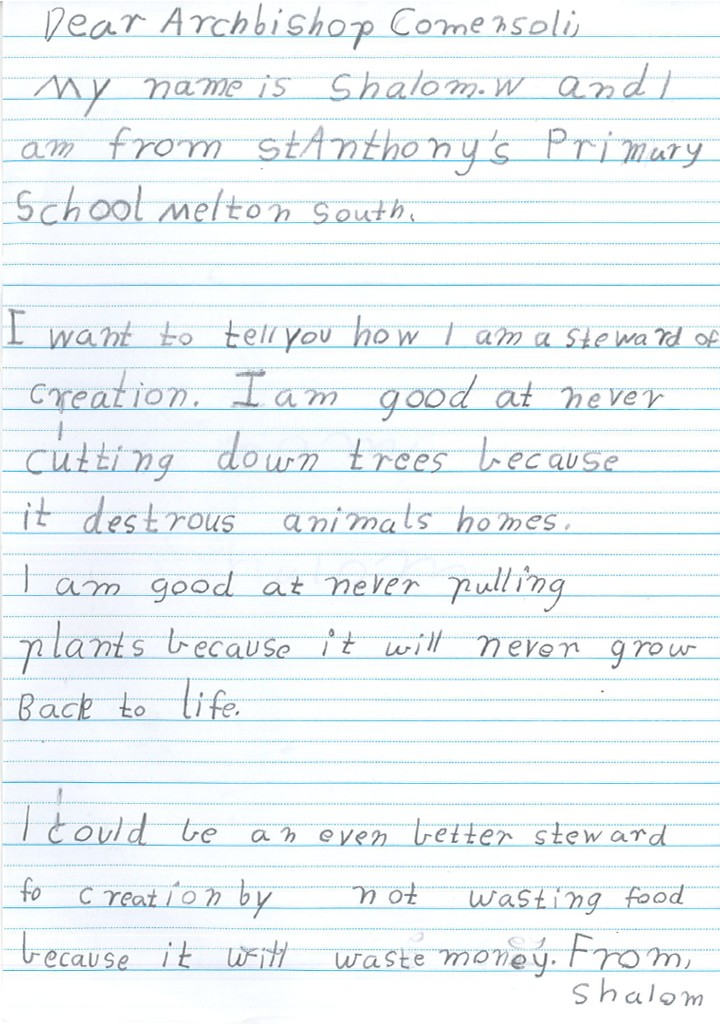 Dear Archbishop Comensoli,
My name is Shalom.W and I
am from stAnthony's Primary
School Melton South.
I want to tell you how I am a steward of
creation. I am good at never
cutting down trees because
it destrous animals homes.
I am good at never pulling
plants because it will never grow
Back to life.
I could be an even better steward
fo creation by not wasting food
because it will waste money. From,
Shalom